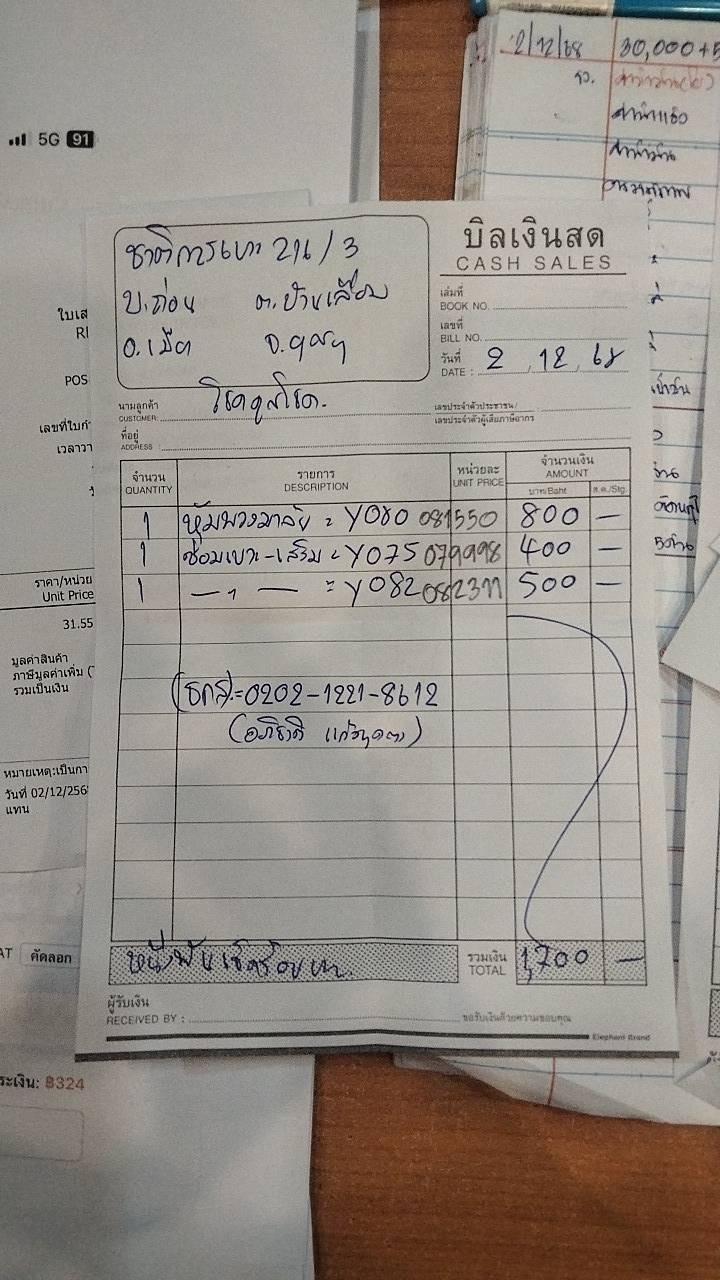 5G 91
2/12/68 30,000+5
ชาติการเบาะ 211/3
บ.ถ่อน ต.บ้านเลื่อม
อ.เมือง จ.อุดรฯ
บิลเงินสด
CASH SALES
เล่มที่
BOOK NO.
เลขที่
BILL NO.
วันที่
DATE : 2 12 68
นามลูกค้า
CUSTOMER: โชคคูณโชค.
เลขประจำตัวประชาชน/
เลขประจำตัวผู้เสียภาษีอากร
ที่อยู่
ADDRESS :
จำนวน รายการ หน่วยละ จำนวนเงิน
QUANTITY DESCRIPTION UNIT PRICE AMOUNT
บาท/Baht ส.ต./Stg.
1 หุ้มพวงมาลัย = Y080 081550 800 —
1 ซ่อมเบาะ-เสริม = Y075 079998 400 —
1 — " — = Y082 082311 500 —
(ธกส)=0202-1221-8612
(อภิชาติ)
หนึ่งพันเจ็ดร้อยบาท
รวมเงิน
TOTAL 1,700 —
ผู้รับเงิน
RECEIVED BY :
ขอรับเงินด้วยความขอบคุณ
Elephant Brand
ใบเส
RI
POS
เลขที่ใบกำ
เวลาวา
ราคา/หน่วย
Unit Price
31.55
มูลค่าสินค้า
ภาษีมูลค่าเพิ่ม (
รวมเป็นเงิน
หมายเหตุ:เป็นกา
วันที่ 02/12/256
แทน
AT คัดลอก
ระเงิน: ฿324